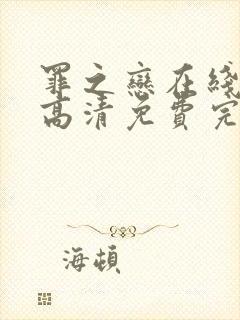 罪之戀在綫
高清免費完
海頓